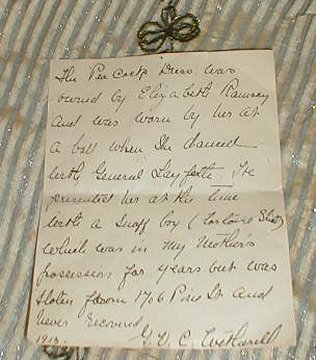 The Peacock Dress was
owned by Elizabeth Ramsay
and was worn by her at
a ball when she danced
with General Layfette. He
presented her at the time
with a snuff box (tortoise Shell)
which was in my Mother's
possession for years but was
stolen from 1706 Pine St. and
never recovered
G. V. C. Wetherill